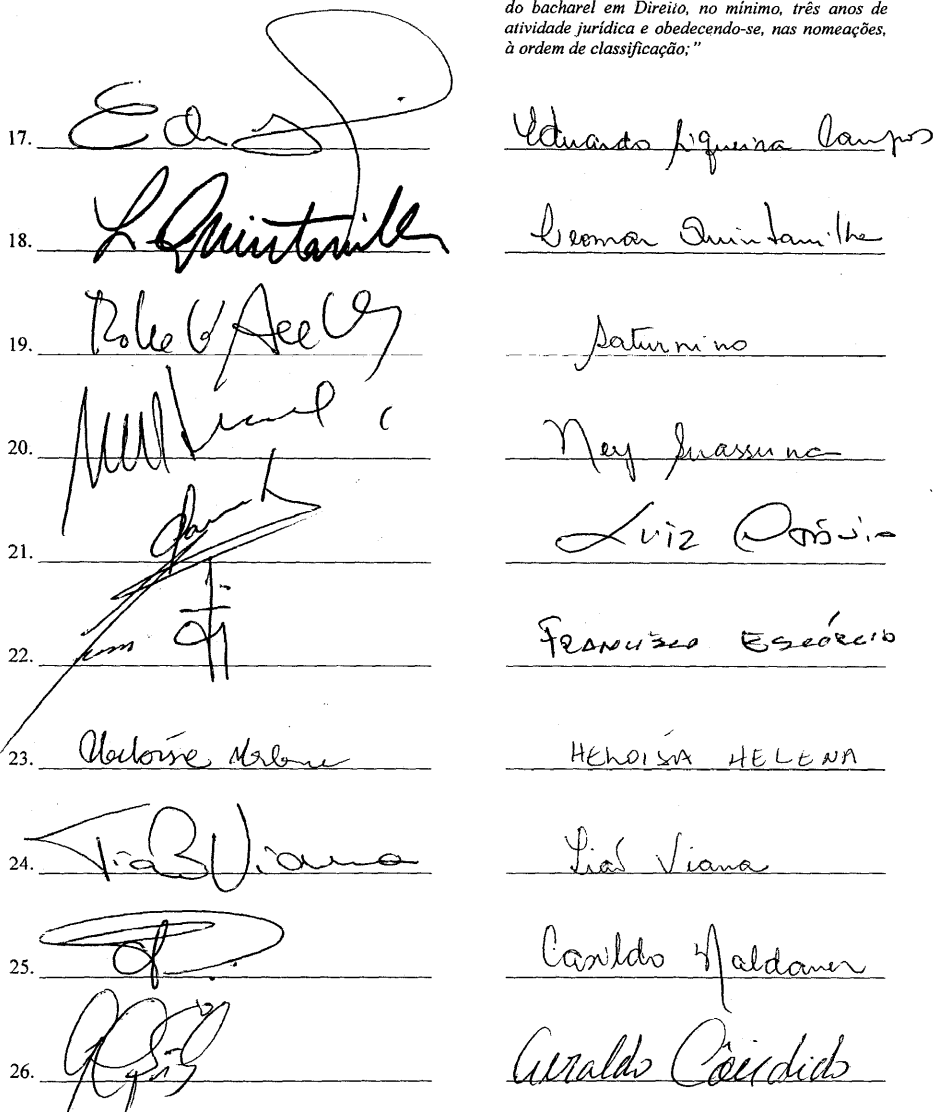 do bacharel em Direito, no mínimo, três anos de
atividade jurídica e obedecendo-se, nas nomeações,
à ordem de classificação;”
17. Eduardo Siqueira Campos
18. L. Quintanilha Leomar Quintanilha
19. Saturnino
20. Ney Suassuna
21. Luiz Otávio
22. FRANCISCO ESCÓRCIO
23. Heloísa Helena HELOÍSA HELENA
24. Tião Viana Tião Viana
25. Casildo Maldaner
26. Geraldo Cândido